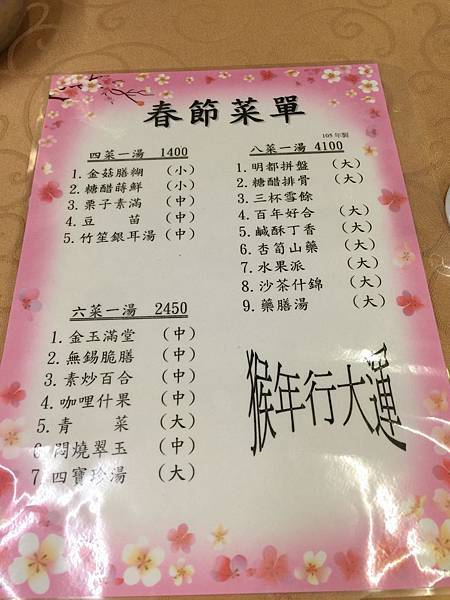 春節菜單
105年製
四菜一湯 1400
1. 金菇膳糊 (小)
2. 糖醋蒔鮮 (小)
3. 栗子素滿 (中)
4. 豆 苗 (中)
5. 竹笙銀耳湯 (中)
六菜一湯 2450
1. 金玉滿堂 (中)
2. 無錫脆膳 (中)
3. 素炒百合 (中)
4. 咖哩什果 (中)
5. 青 菜 (大)
6 悶燒翠玉 (中)
7. 四寶珍湯 (大)
八菜一湯 4100
1. 明都拼盤 (大)
2. 糖醋排骨 (大)
3. 三杯雪餘
4. 百年好合 (大)
5. 鹹酥丁香 (大)
6. 杏筍山藥 (大)
7. 水果派 (大)
8. 沙茶什錦 (大)
9. 藥膳湯 (大)
猴年行大運